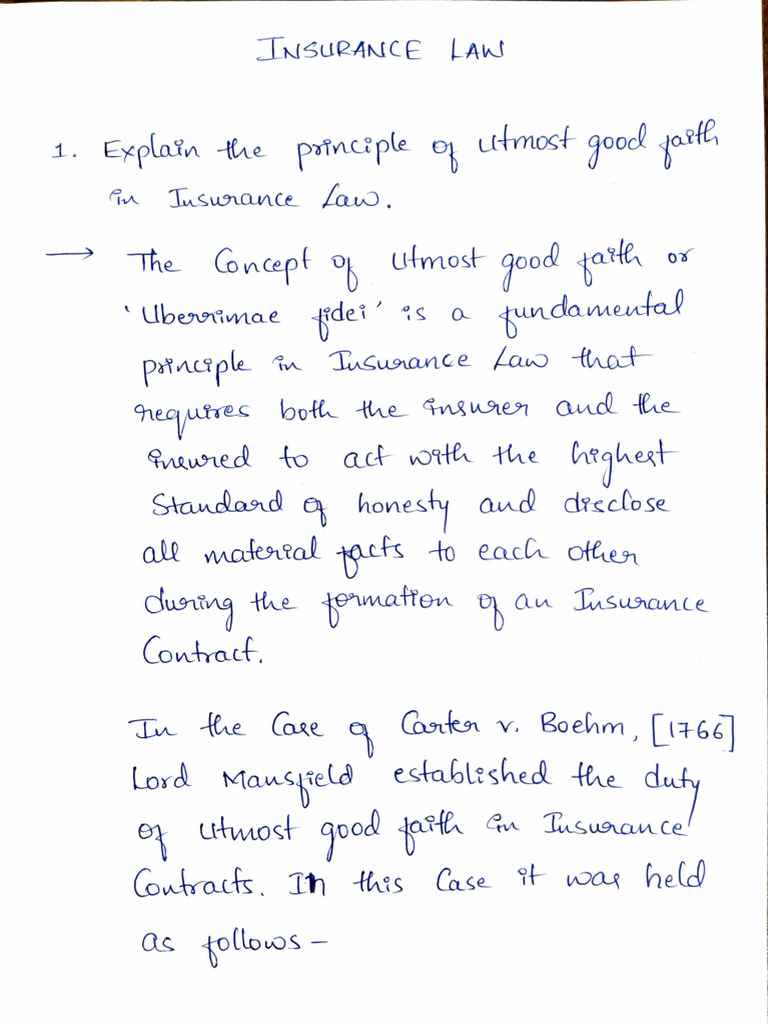 INSURANCE LAW
1. Explain the principle of utmost good faith
in Insurance Law.
→ The Concept of Utmost good faith or
'Uberrimae fidei' is a fundamental
principle in Insurance Law that
requires both the insurer and the
insured to act with the highest
Standard of honesty and disclose
all material facts to each other
during the formation of an Insurance
Contract.
In the Case of Carter v. Boehm, [1766]
Lord Mansfield established the duty
of utmost good faith in Insurance
Contracts. In this Case it was held
as follows –